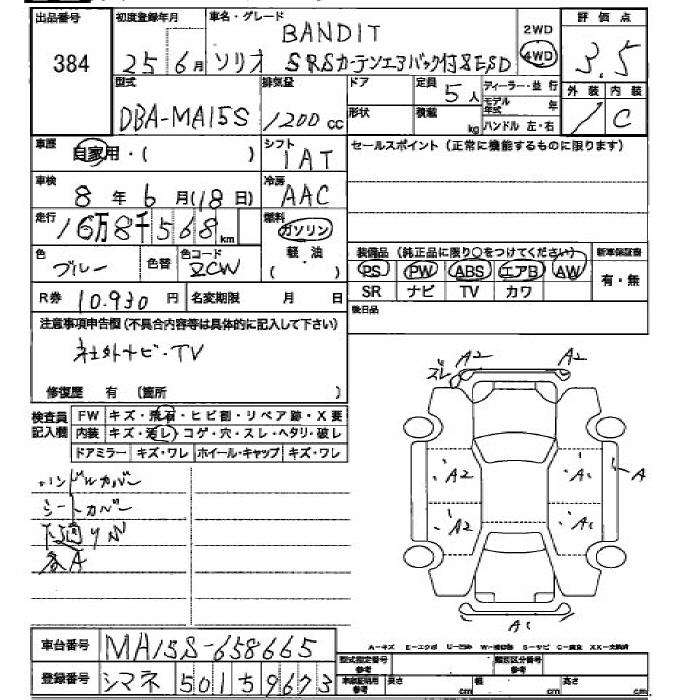 出品番号 初度登録年月 車名・グレード 2WD 評価点
384 25 6月 ソリオ BANDIT 4WD 3.5
SRSカーテンエアバック付 ESD
型式 排気量 ドア 定員 5人 ディーラー・並行 外装 内装
DBA-MA15S 1200cc 形状 積載 kg モデル年式 年 C
ハンドル 左・右
車歴 自家用・( ) シフト 1AT セールスポイント(正常に機能するものに限ります)
車検 8年6月(18日) 冷房 AAC
走行 16万8千568km 燃料 ガソリン
軽・油
( )
色 ブルー 色替 色コード ZCW
装備品(純正品に限り○をつけてください) 新車保証書
PS PW ABS エアB AW 有・無
SR ナビ TV カワ
R券 10.930円 名変期限 月 日
後日品
注意事項申告欄(不具合内容等は具体的に記入して下さい)
社外ナビ・TV
修復歴 有 (箇所 )
検査員記入欄 FW キズ・飛石・ヒビ割・リペア跡・X要
内装 キズ・汚レ・コゲ・穴・スレ・ヘタリ・破レ
ドアミラー キズ・ワレ ホイール・キャップ キズ・ワレ
ハンドルカバー
シートカバー
下廻りサビ
各A
A2 A2
ズレ
A2 A1 A
A2 A1
A1
A-キズ E-エクボ U-凹み W-補修跡 S-サビ C-腐食 XX-交換済
車台番号 MA15S-658665
登録番号 シマネ 501 5 9673
型式指定番号 参考 類別区分番号 参考
車庫証明用 参考 長さ cm 幅 cm 高さ cm